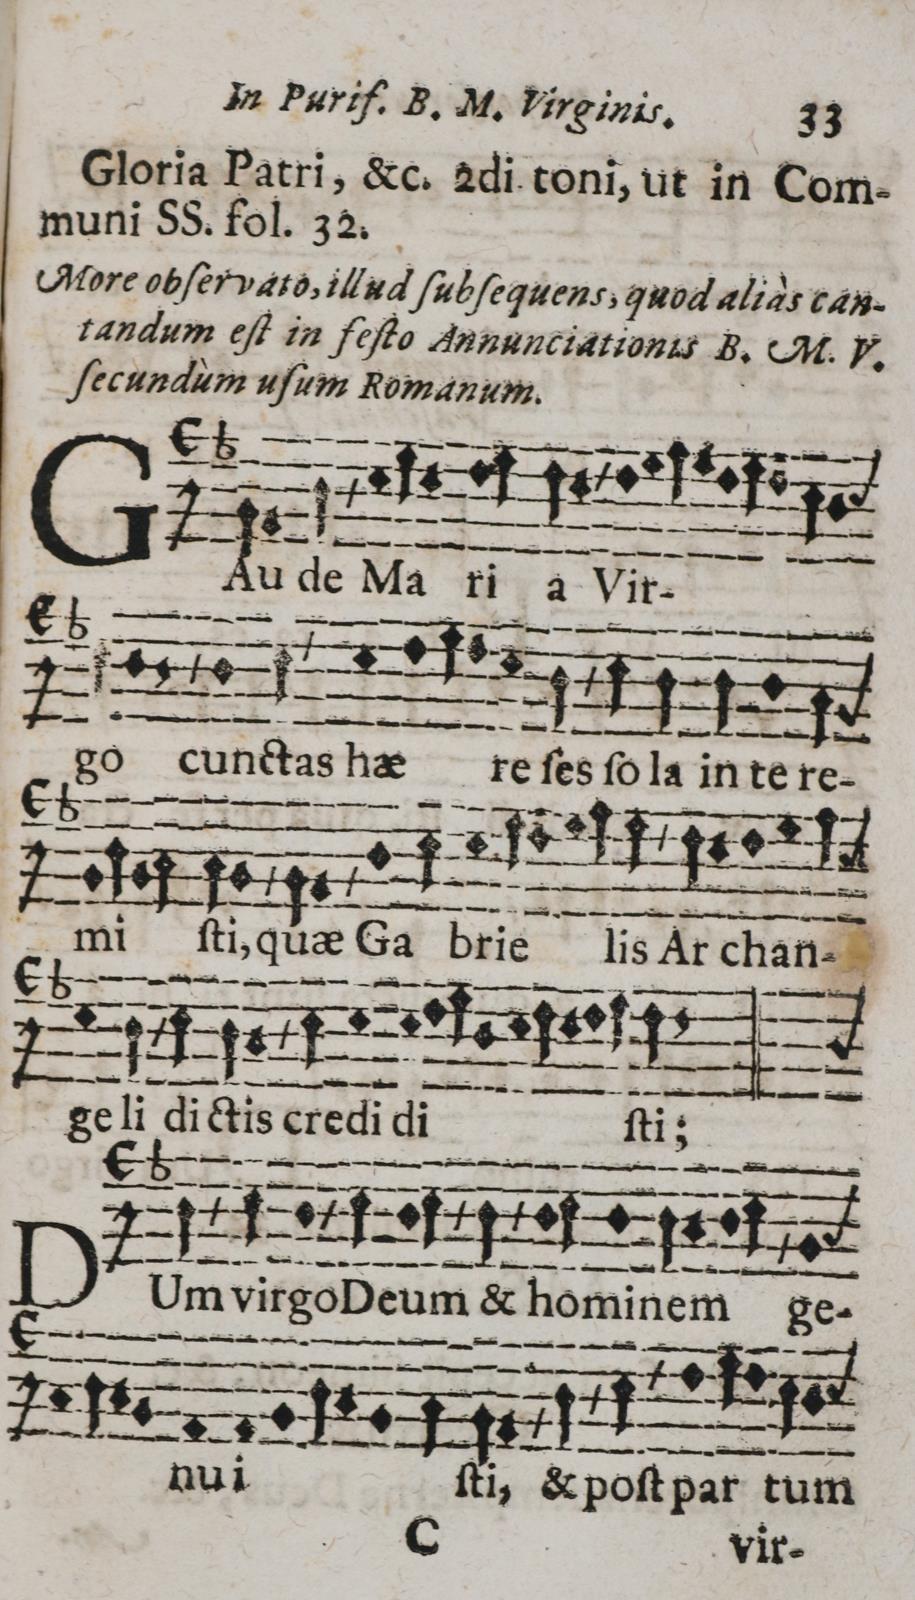 In Puriſ. B. M. Virginis. 33
Gloria Patri, &c. 2di toni, ut in Com-
muni SS. fol. 32.
More obſervato, illud ſubſequens, quod aliàs can-
tandum eſt in feſto Annunciationis B. M. V.
ſecundùm uſum Romanum.
GAu de Ma ri a Vir-
go cunctas hæ re ſes ſo la in te re-
mi ſti, quæ Ga brie lis Ar chan-
ge li di ctis credi di ſti;
DUm virgo Deum & hominem ge-
nu i ſti, & poſt par tum
C vir-